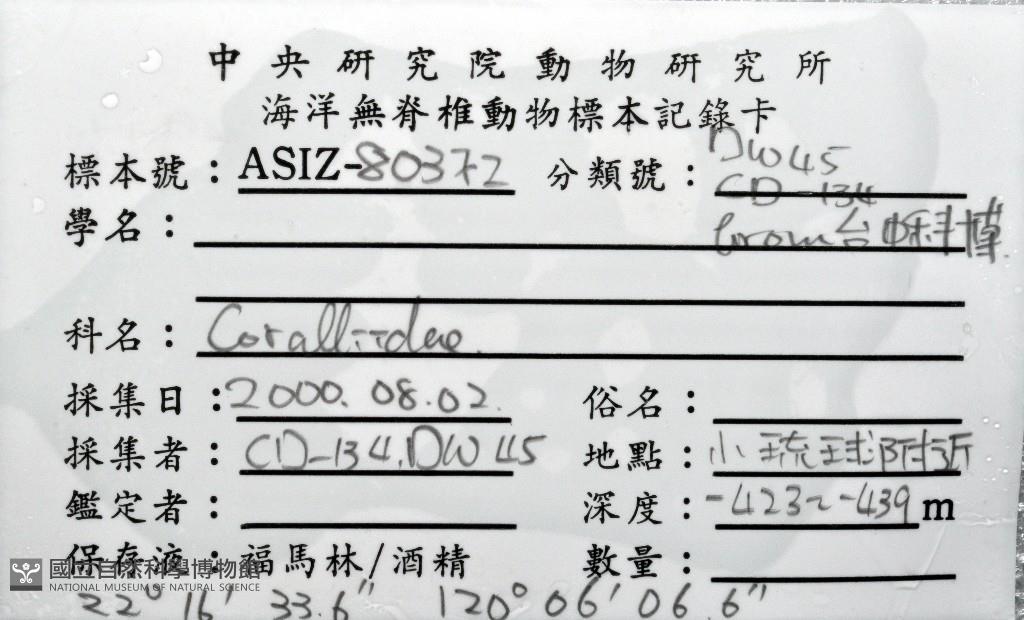 中央研究院動物研究所
海洋無脊椎動物標本記錄卡
標本號：ASIZ-80372 分類號：DW45
CD-134
學名： from台中科博
科名：Coralliidae.
採集日：2000.08.02. 俗名：
採集者：CD-134.DW45 地點：小琉球附近
鑑定者： 深度：-423~-439m
保存液：福馬林/酒精 數量：
國立自然科學博物館
NATIONAL MUSEUM OF NATURAL SCIENCE
22° 16' 33.6" 120° 06' 06.6"